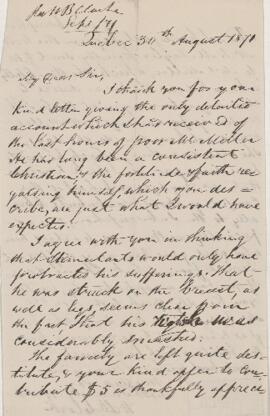 Rev W B Clark
Sept /71
Quebec 30th August 1871
My Dear Sir,
I thank you for your
kind letter giving the only detailed
account which I had received of
the last hours of poor Mr Miller
He has long been a consistent
Christian & the fortitude & faith re
garding himself, which you des =
cribe, are just what I would have
expected.
I agree with you in thinking
that stimulants would only have
protracted his sufferings. That
he was struck on the breast, as
well as legs, seems clear from
the fact that his was
considerably smashed.
The family are left quite des
titute, & your kind offer to con
tribute $5 is thankfully apprec